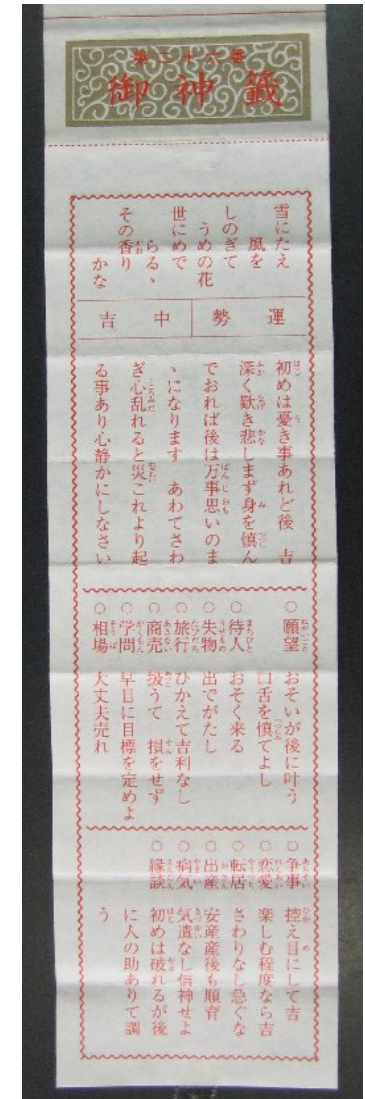 第二十六番
御神籤
雪にたえ
風を
しのぎて
うめの花
世にめで
らるゝ
その香り
かな
運勢 中吉
初めは憂き事あれど後 吉
深く歎き悲しまず身を慎ん
でおれば後は万事思いのま
ゝになります あわてさわ
ぎ心乱れると災これより起
る事あり心静かにしなさい
○願望 おそいが後に叶う
口舌を慎てよし
○待人 おそく来る
○失物 出でがたし
○旅行 ひかえて吉利なし
○商売 扱うて 損をせず
○学問 早目に目標を定めよ
○相場 大丈夫売れ
○争事 控え目にして吉
○恋愛 楽しむ程度なら吉
○転居 さわりなし急ぐな
○出産 安産産後も順育
○病気 気遣なし信神せよ
○縁談 初めは破れるが後
に人の助ありて調
う